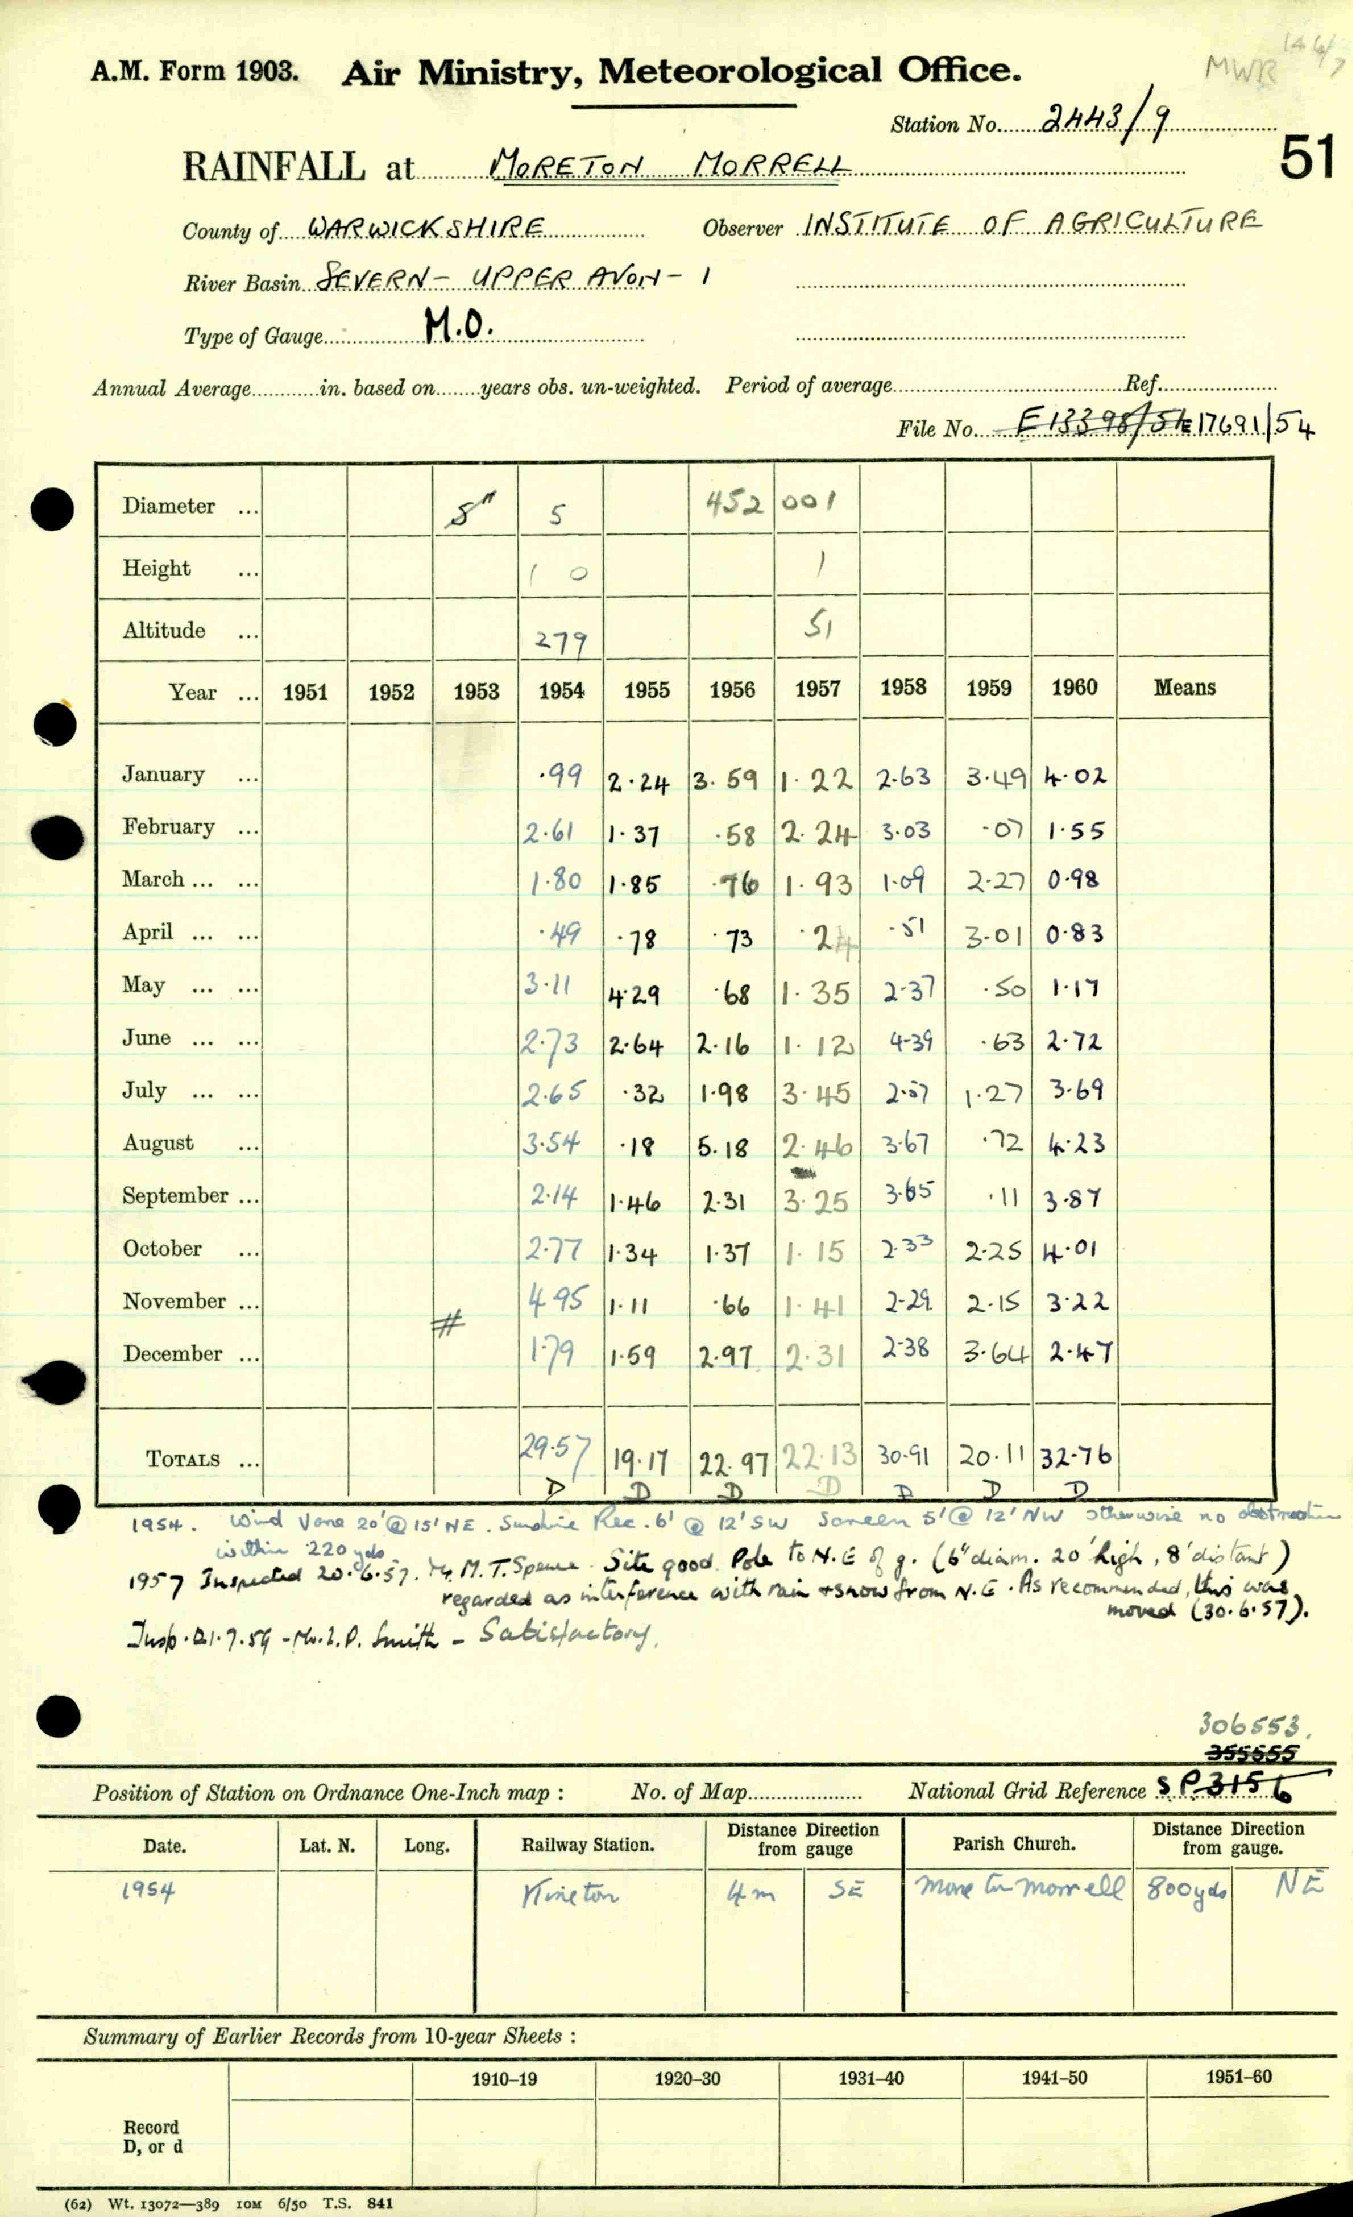 146/7
MWR
A.M. Form 1903. Air Ministry, Meteorological Office.
Station No. 2443/9
51
RAINFALL at MORETON MORRELL
County of WARWICKSHIRE Observer INSTITUTE OF AGRICULTURE
River Basin SEVERN - UPPER AVON - 1
Type of Gauge M.O.
Annual Average in. based on years obs. un-weighted. Period of average Ref.
File No. E13398/51 E17691/54
Diameter ... 5" 5 452 001
Height ... 1 0 1
Altitude ... 279 51
Year ... 1951 1952 1953 1954 1955 1956 1957 1958 1959 1960 Means
January ... ·99 2·24 3·59 1·22 2·63 3·49 4·02
February ... 2·61 1·37 ·58 2·24 3·03 ·07 1·55
March ... ... 1·80 1·85 ·76 1·93 1·09 2·27 0·98
April ... ... ·49 ·78 ·73 ·24 ·51 3·01 0·83
May ... ... 3·11 4·29 ·68 1·35 2·37 ·50 1·17
June ... ... 2·73 2·64 2·16 1·12 4·39 ·63 2·72
July ... ... 2·65 ·32 1·98 3·45 2·57 1·27 3·69
August ... 3·54 ·18 5·18 2·46 3·67 ·72 4·23
September ... 2·14 1·46 2·31 3·25 3·65 ·11 3·87
October ... 2·77 1·34 1·37 1·15 2·33 2·25 4·01
November ... 4·95 1·11 ·66 1·41 2·29 2·15 3·22
#
December ... 1·79 1·59 2·97 2·31 2·38 3·64 2·47
TOTALS ... 29·57 19·17 22·97 22·13 30·91 20·11 32·76
D D D D D D D
1954. Wind Vane 20' @ 15' NE. Sunshine Rec. 6' @ 12' SW Screen 5' @ 12' NW otherwise no obstruction
within 220 yds.
1957 Inspected 20.6.57. Mr. M.T. Spence. Site good. Pole to N.E of g. (6" diam. 20' high, 8' distant)
regarded as interference with rain + snow from N.E. As recommended, this was
moved (30.6.57).
Insp. 21.7.59 - Mr. L.P. Smith - Satisfactory.
306553.
355555
Position of Station on Ordnance One-Inch map : No. of Map National Grid Reference SP3156
Date. Lat. N. Long. Railway Station. Distance Direction from gauge Parish Church. Distance Direction from gauge.
1954 Kineton 4m SE Moreton Morrell 800yds NE
Summary of Earlier Records from 10-year Sheets :
1910–19 1920–30 1931–40 1941–50 1951–60
Record
D, or d
(62) Wt. 13072—389 10M 6/50 T.S. 841